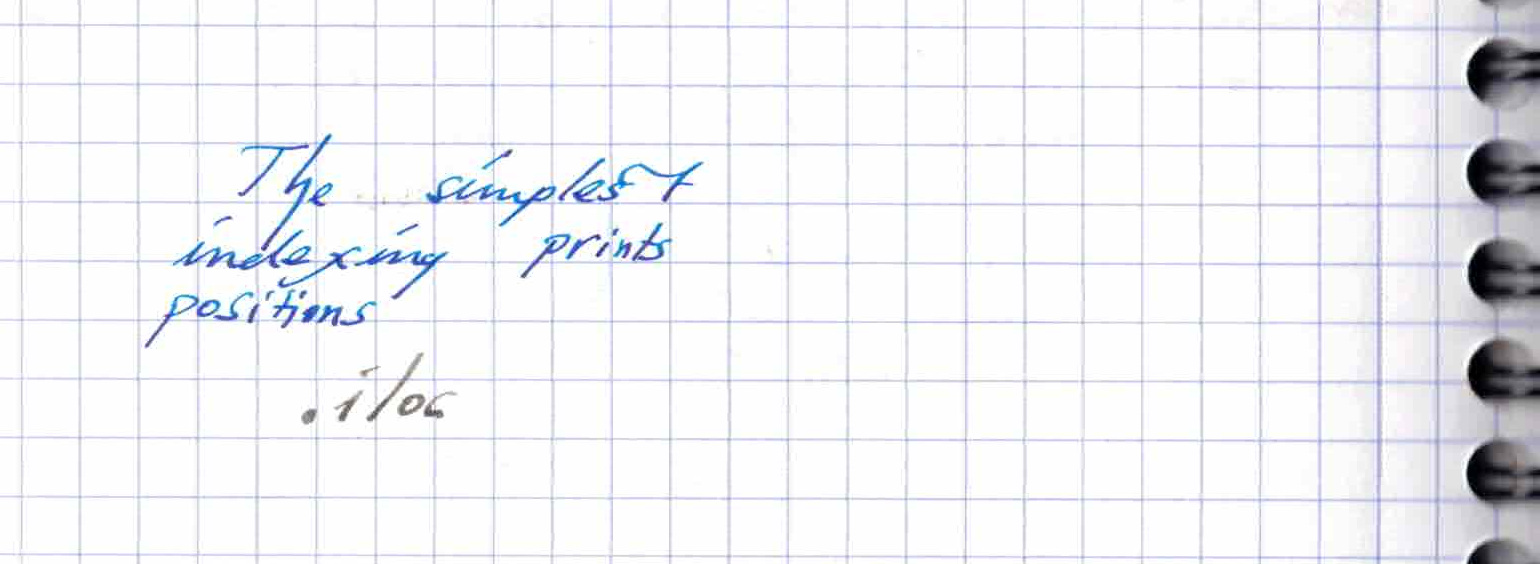 The simplest
indexing prints
positions
.iloc